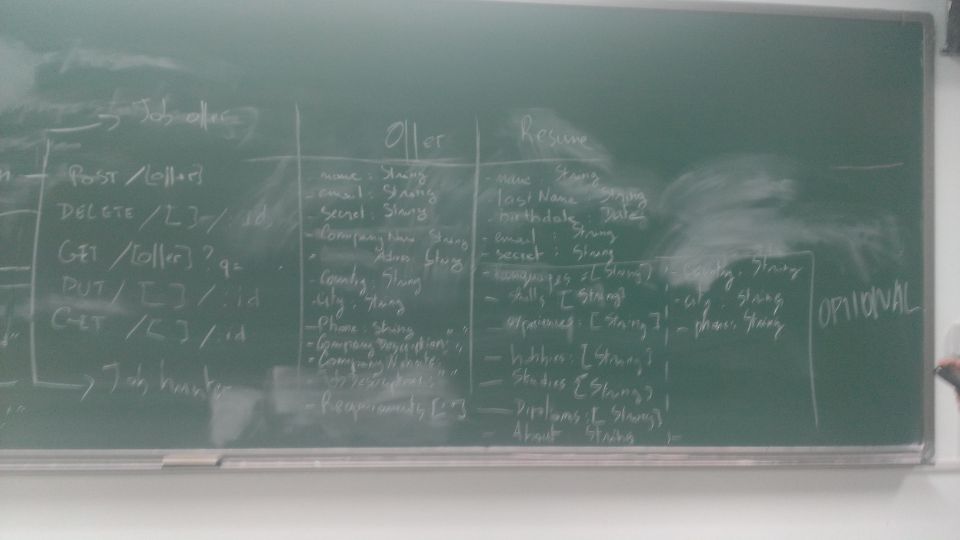 → Job offer
POST /[offer]
DELETE /[ ]/:id
GET /[offer]?q=
PUT / [ ] /:id
GET / [ ] /:id
→ Job hunter
Offer
- name: String
- email: String
- secret: String
- Company Name String
" Adress String
- Country: String
- City: String
- Phone: String
- Company Description: " "
- Company Website:
- Job Description: " "
- Requirements [" "]
Resume
- name String
lastName String
- birthdate: Date
- email: String
- secret: String
- Languages: [String]
- skills [String]
- experiences: [String]
- hobbies: [String]
- Studies [String]
- Diplomas: [String]
- About String
- Country: String
- city: String
- phone: String
OPTIONAL